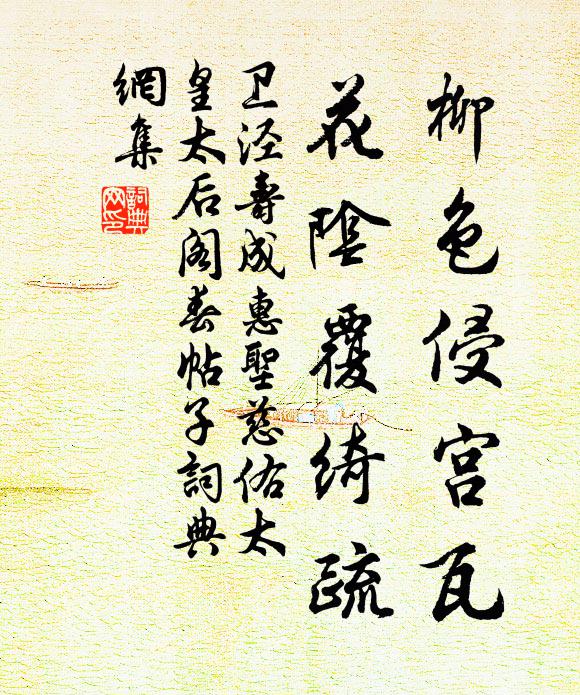 柳色侵宫瓦
花陰覆綺疏
卫泾壽成惠聖慈佑太
皇太后阁春帖子詞典
網集
詞典
网印